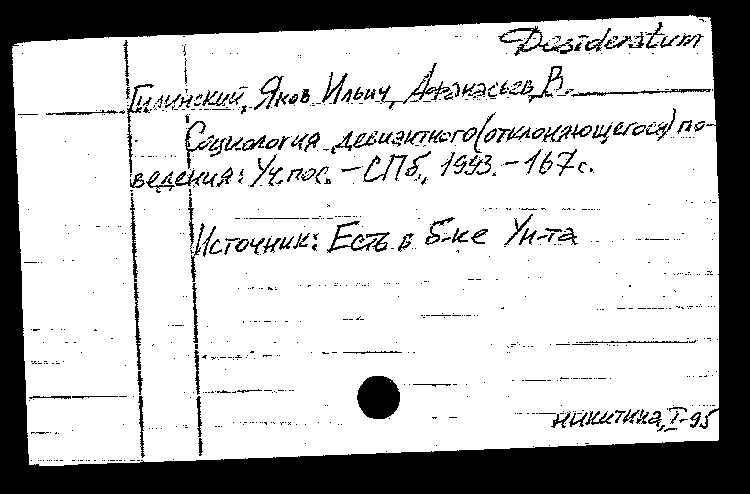 Desideratum
Гилинский, Яков Ильич, Афанасьев, В.
Социология девиантного (отклоняющегося) по-
ведения: Уч. пос. – СПб., 1993. – 167 с.
Источник: Есть в б-ке Ун-та
никитина, I-95